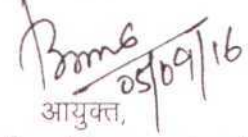 05/09/16
आयुक्त,